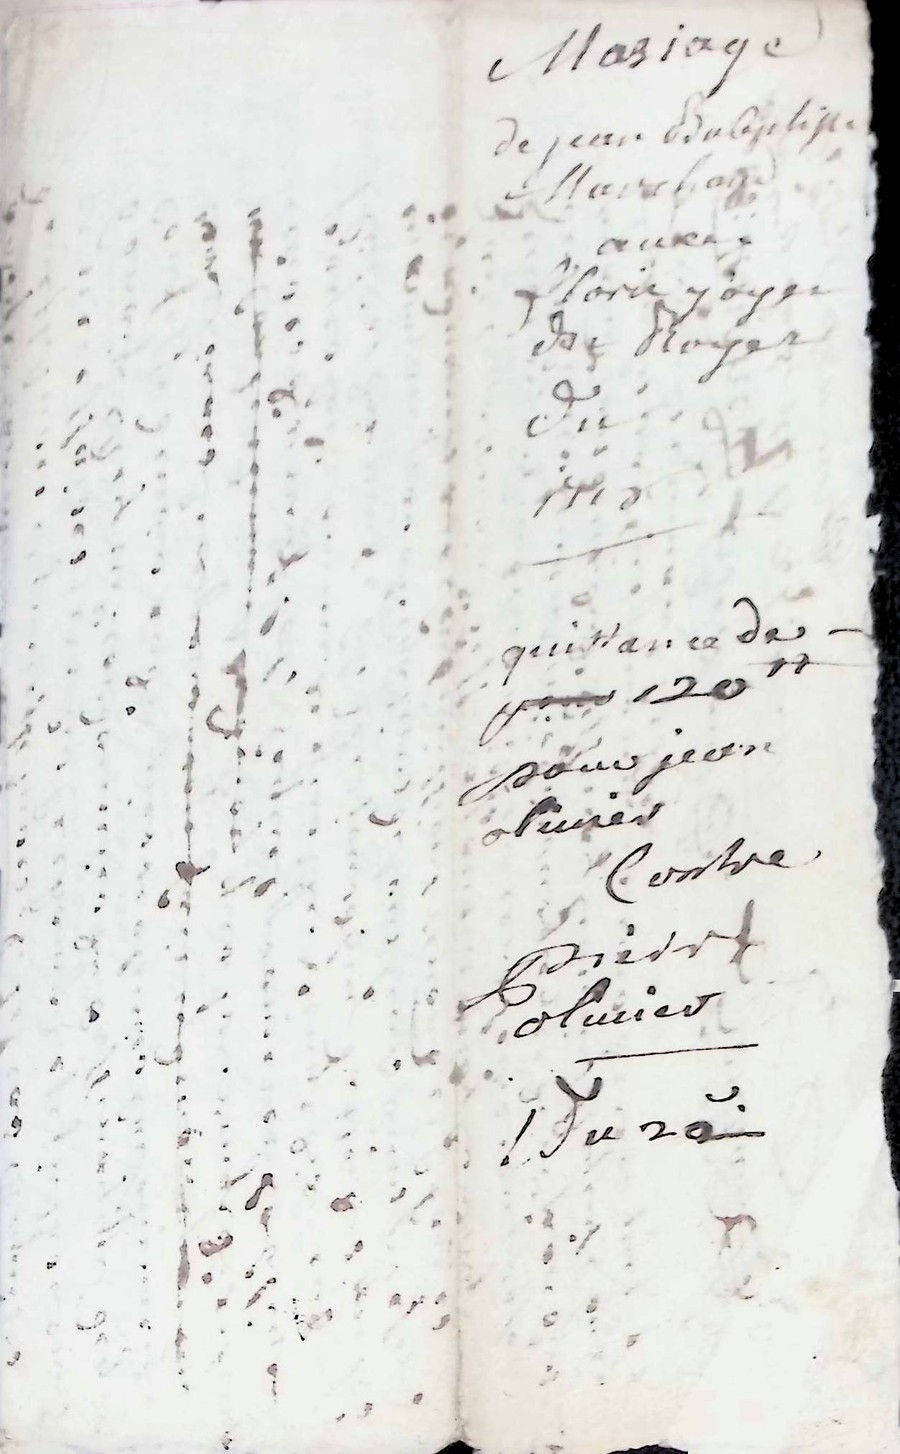 Mariage
de jean Babtiste
Marchand
avec
florie joyer
du Royer
Du
quittance de
pour 120 tt
pour jean
olivier
Contre
Pierre
olivier
Du 20